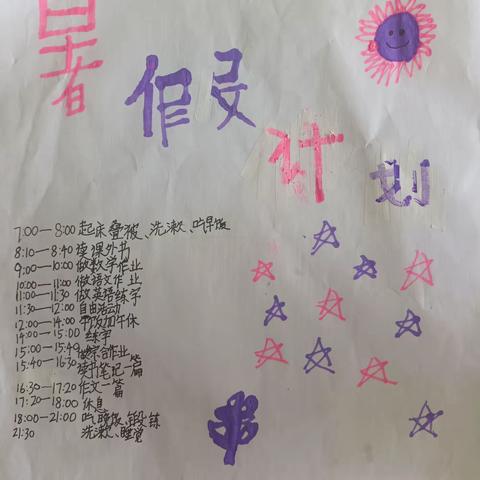 暑假计划
7:00—8:00 起床叠被、洗漱、吃早饭
8:10—8:40 读课外书
9:00—10:00 做数学作业
10:00—11:00 做语文作业
11:00—11:30 做英语练字
11:30—12:00 自由活动
12:00—14:00 午饭加午休
14:00—15:00 练字
15:00—15:40 做综合作业
15:40—16:30 读书笔记一篇
16:30—17:20 作文一篇
17:20—18:00 休息
18:00—21:00 吃晚饭、锻练
21:30 洗漱、睡觉